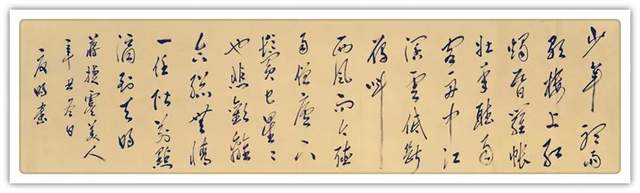 少年聽雨
歌樓上紅
燭昏羅帳
壯年聽雨
客舟中江
闊雲低斷
雁叫
西風而今聽
雨僧廬下
鬢已星星
也悲歡離
合總無情
一任階前點
滴到天明
蔣捷虞美人
辛丑冬日
明書